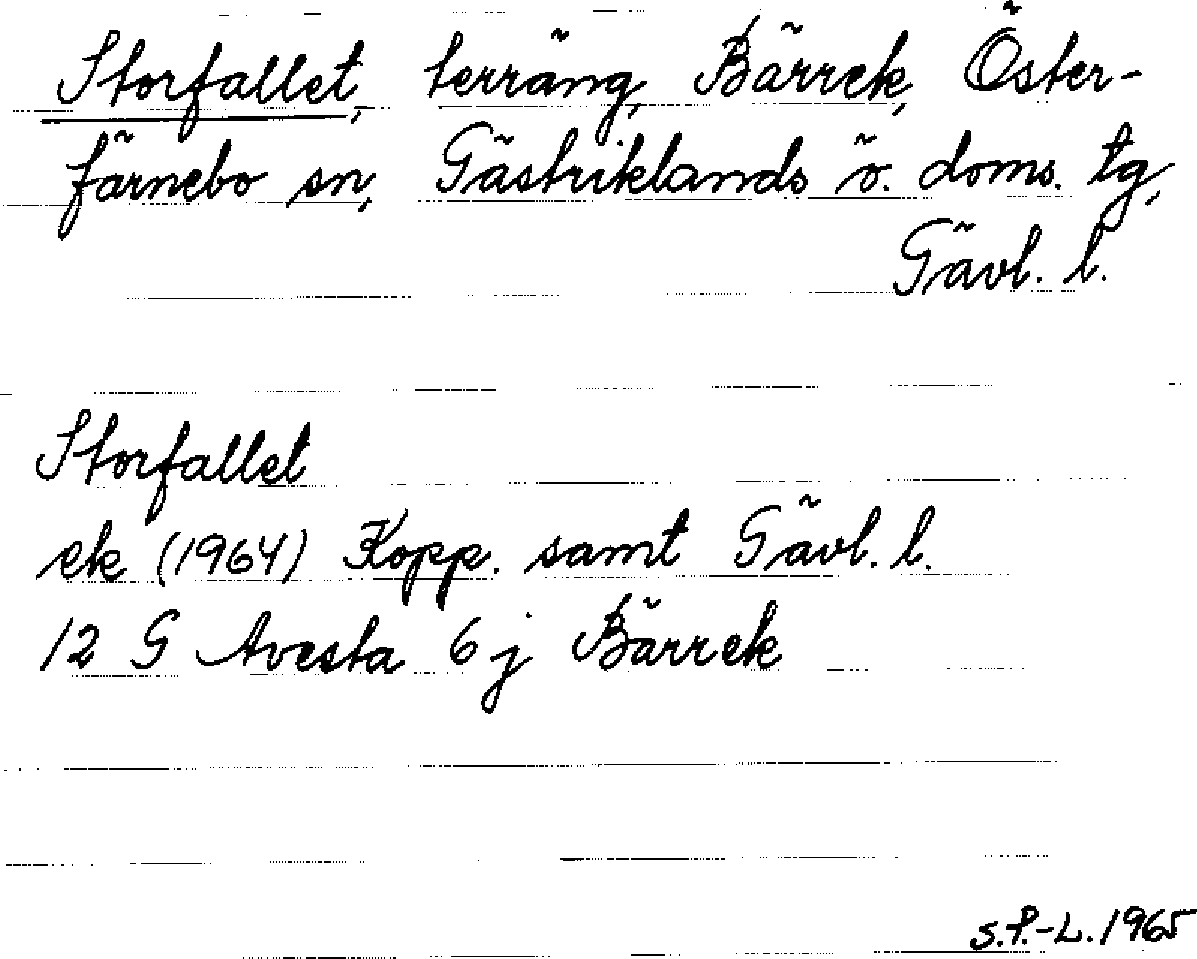 Storfallet, terräng, Bärrek, Öster-
färnebo sn, Gästriklands ö. doms. tg,
Gävl. l.
Storfallet
ek (1964) Kopp. samt Gävl. l.
12 G Avesta 6 j Bärrek
S.P.-L. 1965